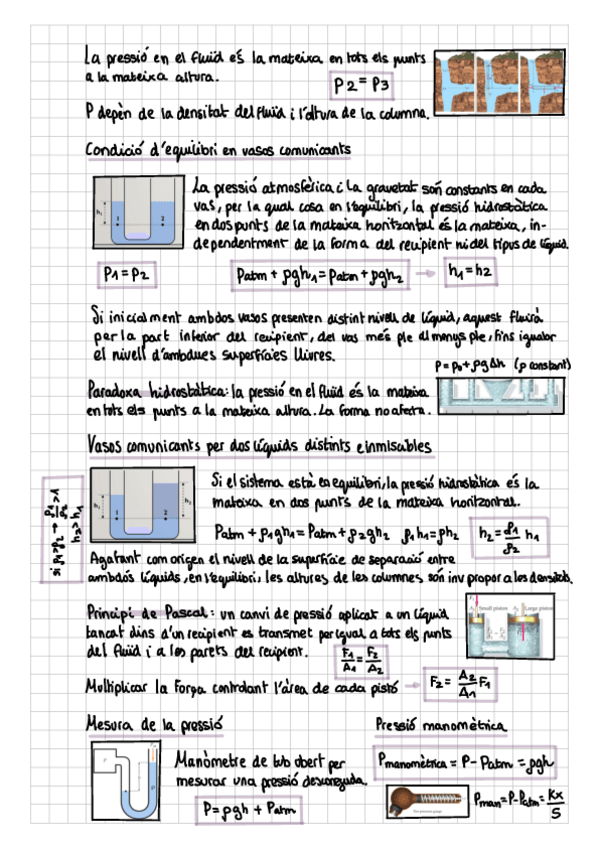 La pressió en el fluïd és la mateixa en tots els punts
a la mateixa altura.
P2 = P3
P depèn de la densitat del fluïd i l'altura de la columna.
Condició d'equilibri en vasos comunicants
La pressió atmosfèrica i la gravetat són constants en cada
vas, per la qual cosa en l'equilibri, la pressió hidrostàtica
en dos punts de la mateixa horitzontal és la mateixa, in-
dependentment de la forma del recipient ni del tipus de líquid.
h₁
1
2
P1 = P2
Patm + ρgh1 = Patm + ρgh2 → h1 = h2
Si inicialment ambdos vasos presenten distint nivell de líquid, aquest fluirà
per la part inferior del recipient, del vas més ple al menys ple, fins igualar
el nivell d'ambdues superfícies lliures.
P = P0 + ρgΔh (ρ constant)
Paradoxa hidrostàtica: la pressió en el fluïd és la mateixa
en tots els punts a la mateixa altura. La forma no afecta.
Vasos comunicants per dos líquids distints e inmiscibles
si ρ1 > ρ2 → ρ1/ρ2 > 1
h2 > h1
1
2
Si el sistema està en equilibri, la pressió hidrostàtica és la
mateixa en dos punts de la mateixa horitzontal.
Patm + ρ1gh1 = Patm + ρ2gh2 ρ1h1 = ρh2 h2 = ρ1/ρ2 h1
Agafant com origen el nivell de la superfície de separació entre
ambdós líquids, en l'equilibri, les altures de les columnes són inv propor a les densitats.
Principi de Pascal: un canvi de pressió aplicat a un líquid
tancat dins d'un recipient es transmet per igual a tots els punts
del fluïd i a les parets del recipient.
Small piston
Large piston
F1/A1 = F2/A2
Multiplicar la força controlant l'àrea de cada pistó → F2 = A2/A1 F1
Mesura de la pressió
Manòmetre de tub obert per
mesurar una pressió desconeguda.
P = ρgh + Patm
Pressió manomètrica
Pmanomètrica = P - Patm = ρgh
Pman = P - Patm = Kx/S